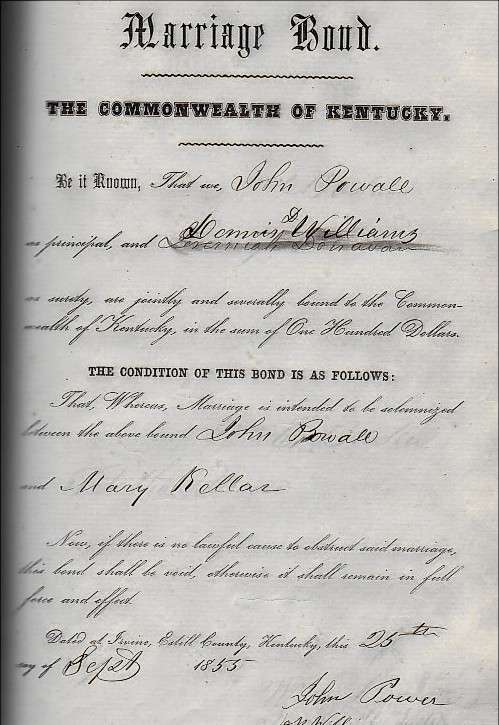 Marriage Bond.
THE COMMONWEALTH OF KENTUCKY.
Be it Known, That we, John Powall
Dennis D Williams
as principal, and Jeremiah Donavan
as surety, are jointly and severally bound to the Common-
wealth of Kentucky, in the sum of One Hundred Dollars.
THE CONDITION OF THIS BOND IS AS FOLLOWS:
That, Whereas, Marriage is intended to be solemnized
between the above bound John Powall
and Mary Kellar
Now, if there is no lawful cause to obstruct said marriage,
this bond shall be void, otherwise it shall remain in full
force and effect.
Dated at Irvine, Estill County, Kentucky, this 25th
day of Sept 1855
John Power